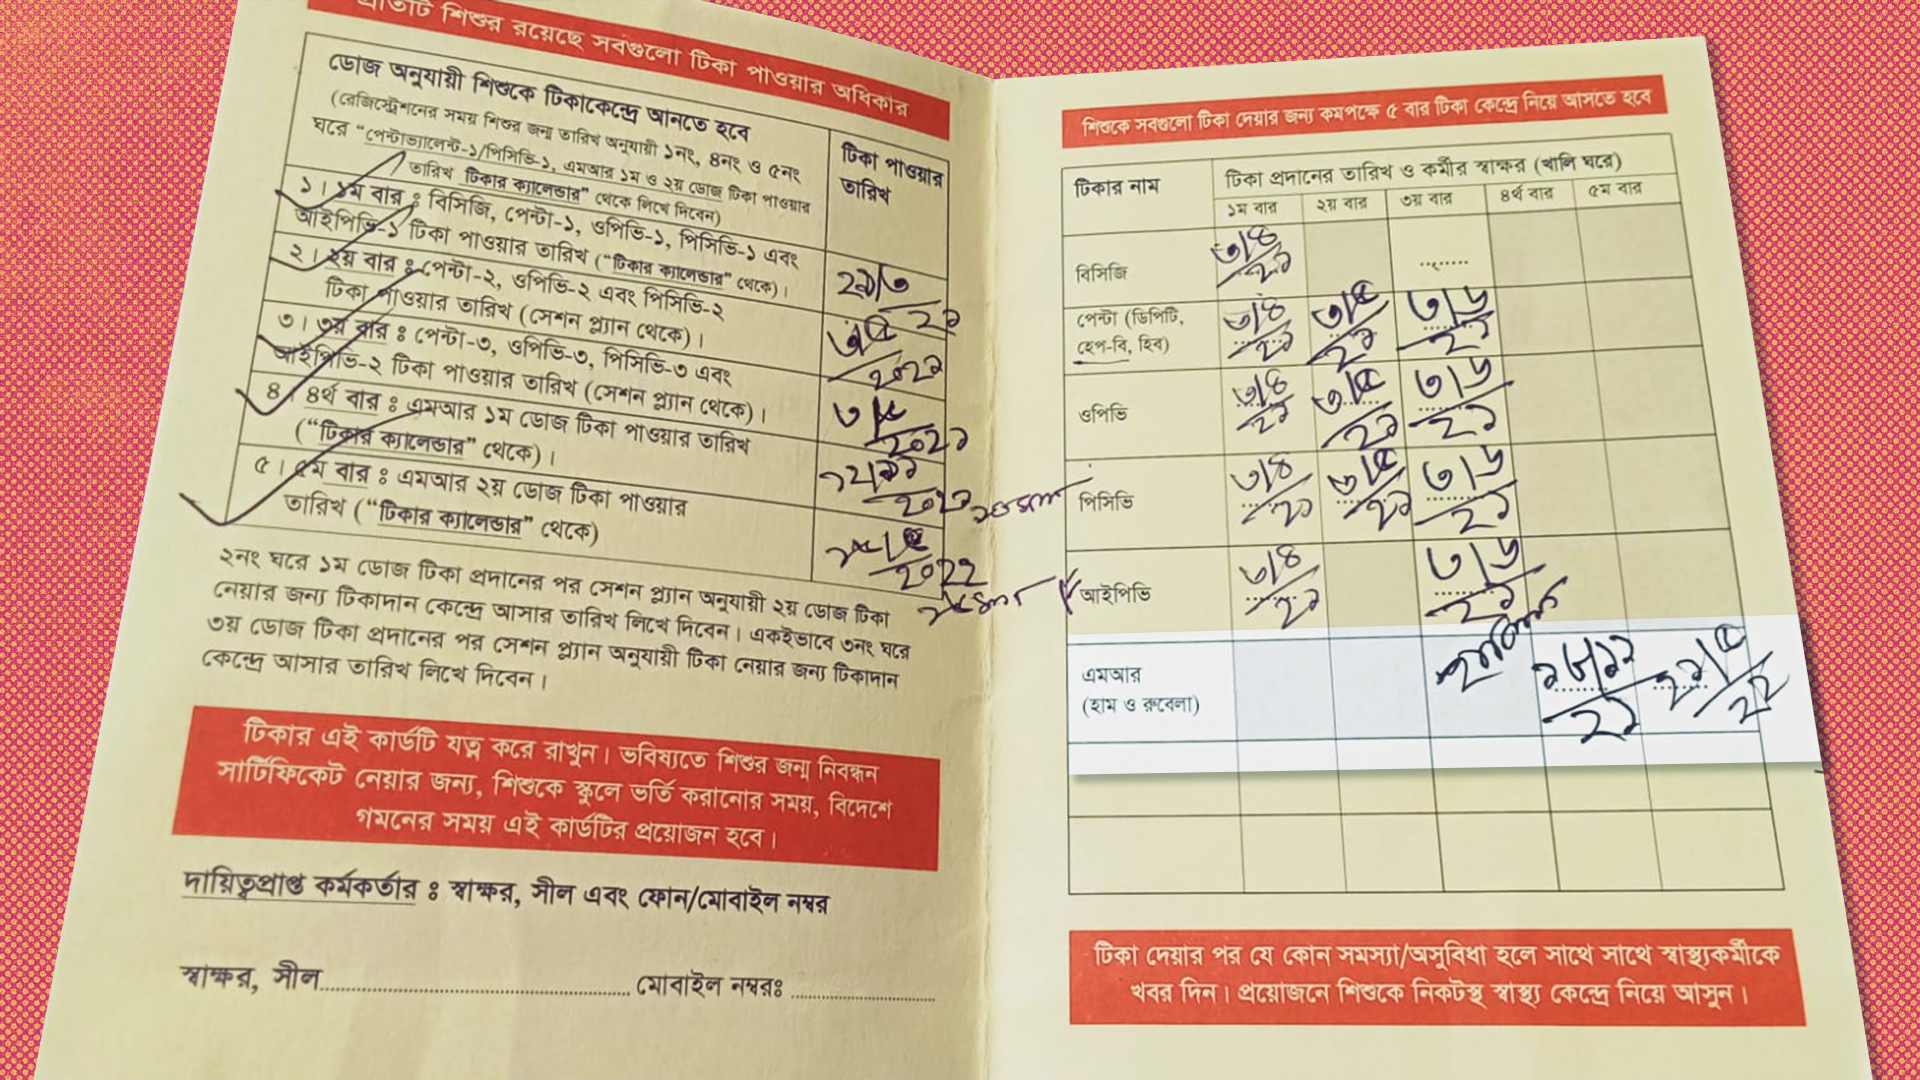 প্রতিটি শিশুর রয়েছে সবগুলো টিকা পাওয়ার অধিকার
ডোজ অনুযায়ী শিশুকে টিকাকেন্দ্রে আনতে হবে
(রেজিস্ট্রেশনের সময় শিশুর জন্ম তারিখ অনুযায়ী ১নং, ৪নং ও ৫নং
ঘরে “পেন্টাভ্যালেন্ট-১/পিসিভি-১, এমআর ১ম ও ২য় ডোজ টিকা পাওয়ার
তারিখ টিকার ক্যালেন্ডার” থেকে লিখে দিবেন)
টিকা পাওয়ার
তারিখ
১। ১ম বার ঃ বিসিজি, পেন্টা-১, ওপিভি-১, পিসিভি-১ এবং
আইপিভি-১ টিকা পাওয়ার তারিখ (“টিকার ক্যালেন্ডার” থেকে)।
২। ২য় বার ঃ পেন্টা-২, ওপিভি-২ এবং পিসিভি-২
টিকা পাওয়ার তারিখ (সেশন প্ল্যান থেকে)।
২০২১
৩। ৩য় বার ঃ পেন্টা-৩, ওপিভি-৩, পিসিভি-৩ এবং
আইপিভি-২ টিকা পাওয়ার তারিখ (সেশন প্ল্যান থেকে)।
২০২১
৪। ৪র্থ বার ঃ এমআর ১ম ডোজ টিকা পাওয়ার তারিখ
(“টিকার ক্যালেন্ডার” থেকে)।
৫। ৫ম বার ঃ এমআর ২য় ডোজ টিকা পাওয়ার
তারিখ (“টিকার ক্যালেন্ডার” থেকে)
২০২২
২নং ঘরে ১ম ডোজ টিকা প্রদানের পর সেশন প্ল্যান অনুযায়ী ২য় ডোজ টিকা
নেয়ার জন্য টিকাদান কেন্দ্রে আসার তারিখ লিখে দিবেন। একইভাবে ৩নং ঘরে
৩য় ডোজ টিকা প্রদানের পর সেশন প্ল্যান অনুযায়ী টিকা নেয়ার জন্য টিকাদান
কেন্দ্রে আসার তারিখ লিখে দিবেন।
টিকার এই কার্ডটি যত্ন করে রাখুন। ভবিষ্যতে শিশুর জন্ম নিবন্ধন
সার্টিফিকেট নেয়ার জন্য, শিশুকে স্কুলে ভর্তি করানোর সময়, বিদেশে
গমনের সময় এই কার্ডটির প্রয়োজন হবে।
দায়িত্বপ্রাপ্ত কর্মকর্তার ঃ স্বাক্ষর, সীল এবং ফোন/মোবাইল নম্বর
স্বাক্ষর, সীল.................................................. মোবাইল নম্বরঃ ......................
শিশুকে সবগুলো টিকা দেয়ার জন্য কমপক্ষে ৫ বার টিকা কেন্দ্রে নিয়ে আসতে হবে
টিকার নাম
টিকা প্রদানের তারিখ ও কর্মীর স্বাক্ষর (খালি ঘরে)
১ম বার ২য় বার ৩য় বার ৪র্থ বার ৫ম বার
বিসিজি ৩/৪/২১
পেন্টা (ডিপিটি,
হেপ-বি, হিব) ৩/৪/২১ ৩/৫/২১ ৩/৬/২১
ওপিভি ৩/৪/২১ ৩/৫/২১ ৩/৬/২১
পিসিভি ৩/৪/২১ ৩/৫/২১ ৩/৬/২১
আইপিভি ৩/৪/২১ ৩/৬/২১
এমআর
(হাম ও রুবেলা)
টিকা দেয়ার পর যে কোন সমস্যা/অসুবিধা হলে সাথে সাথে স্বাস্থ্যকর্মীকে
খবর দিন। প্রয়োজনে শিশুকে নিকটস্থ স্বাস্থ্য কেন্দ্রে নিয়ে আসুন।